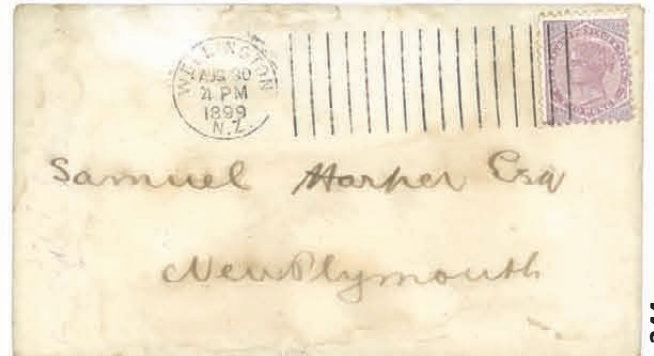 WELLINGTON
AUG 30
4 PM
1899
N.Z.
Samuel Harper Esq
New Plymouth